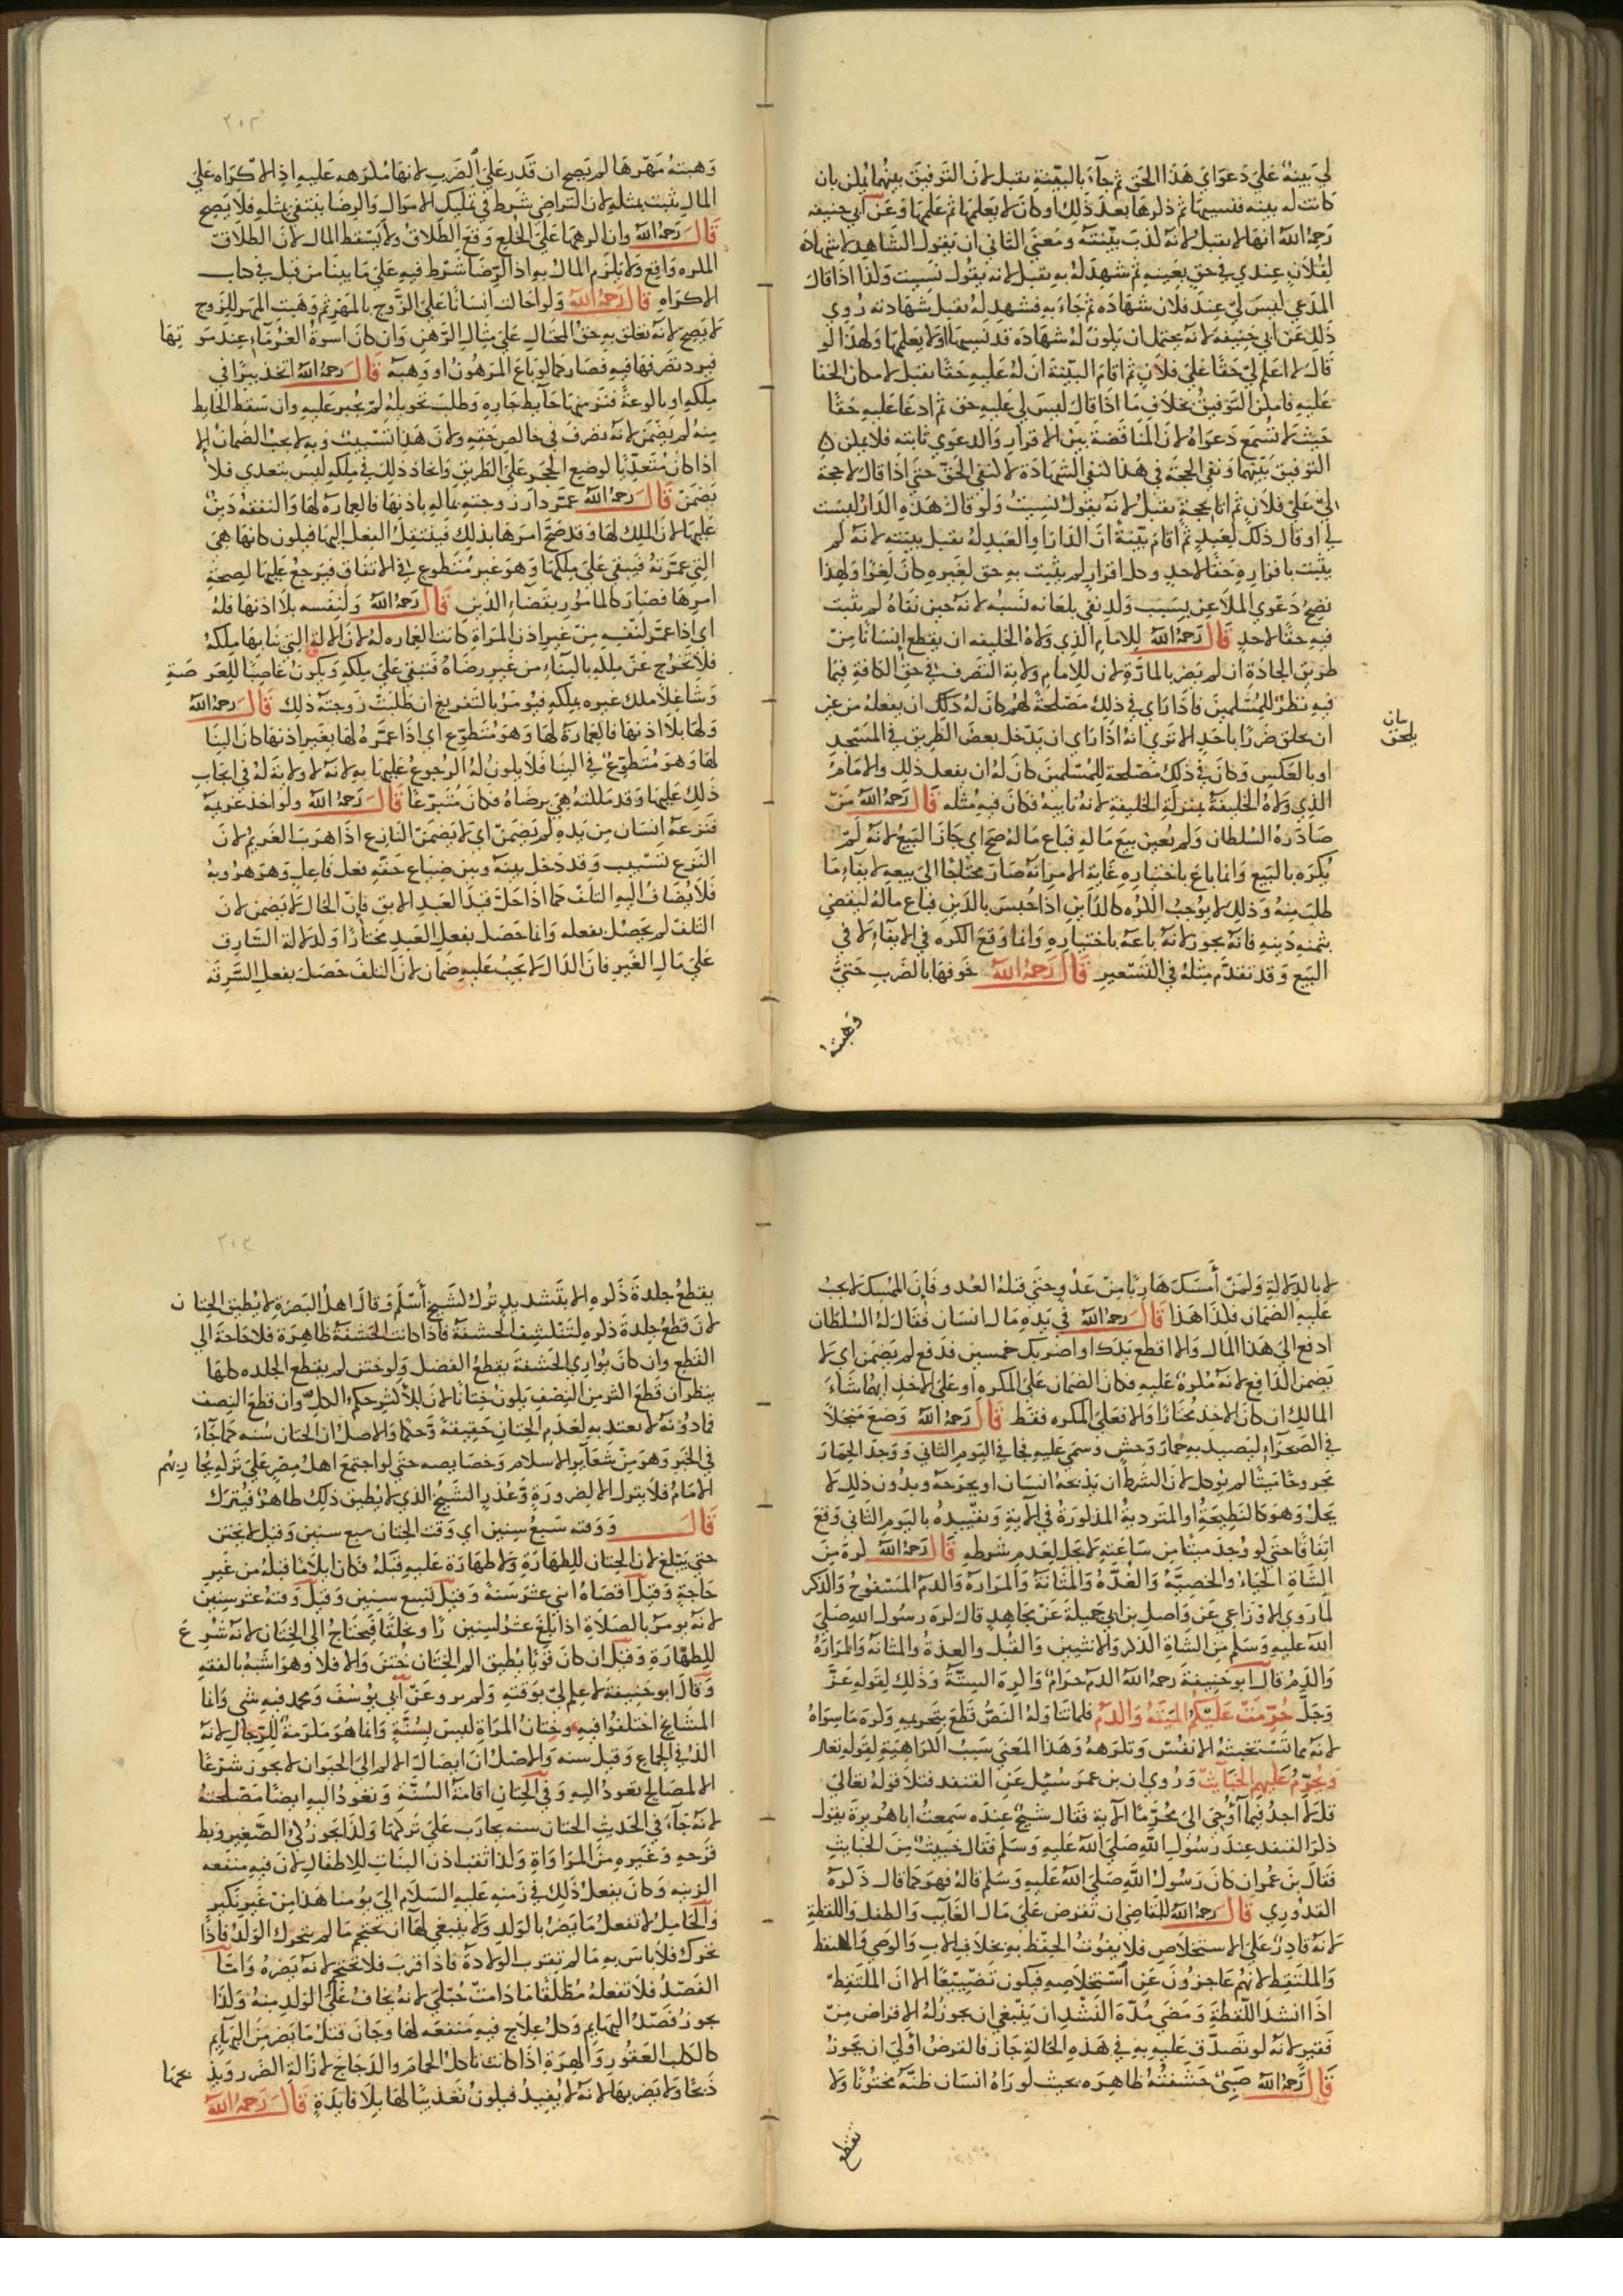 لي بينة على دعواي هذا الحق ثم جاء بالبينة يقبل لان التوفيق بينهما يمكن بان
كانت له بينه فنسيها ثم ذكرها بعد ذلك او كان لا يعلمها ثم علمها وعن ابي حنيفه
رحمه الله انها لا يقبل لانه كذب بينته ومعنى الثاني ان يقول الشاهد لا شهادة
لفلان عندي في حق بعينه ثم شهد له به يقبل لانه يقول نسيت ولذا اذا قال
المدعي ليس لي عند فلان شهاده ثم جاء به فشهد له يقبل شهادته روي
ذلك عن ابي حنيفة لانه يحتمل ان يكون له شهادة قد نسيها او لا يعلمها ولهذا لو
قال لا اعلم لي حقا على فلان ثم اقام البينة ان له عليه حقا يقبل لامكان الخفا
عليه فامكن التوفيق بخلاف ما اذا قال ليس لي عليه حق ثم ادعا عليه حقا
حيث لا تسمع دعواه لان المناقضة بين الاقرار والدعوي ثابته فلا يمكن
التوفيق بينهما ونفي الحجة في هذا كنفي الشهادة لا كنفي الحق حتى اذا قال لا حجة
لي على فلان ثم اتا بحجة يقبل لانه يقول نسيت ولو قال هذه الدار ليست
لي او قال ذلك لعبد ثم اقام بينة ان الدار او العبد له يقبل بينته لانه لم
يثبت باقراره حقا لاحد وكل اقرار لم يثبت به حق لغيره كان لغوا ولهذا
تصح دعوي الملاعن بسبب ولد نفي بلعانه نسبه لانه حين نفاه لم يثبت
فيه حقا لاحد قال رحمه الله للامام الذي ولاه الخليفه ان يقطع انسانا من
طريق الجادة ان لم يضر بالمارة لان للامام ولاية التصرف في حق الكافة فيما
فيه نظر للمسلمين فاذا راي في ذلك مصلحة لهم كان له ذلك ان يفعله من غير
ان يلحق ضررا باحد الا تري انه اذا راي ان يدخل بعض الطريق في المسجد
او بالعكس وكان في ذلك مصلحة للمسلمين كان له ان يفعل ذلك والامام
الذي ولاه الخليفة بمنزلة الخليفة لانه نايبه فكان فيه مثله قال رحمه الله من
صادره السلطان ولم يعين بيع ماله فباع ماله صح اي جاز البيع لانه لم
يكره بالبيع وانما باع باختياره غاية الامر انه صار محتاجا الى بيعه لايفاء ما
طلب منه وذلك لا يوجب الكره كالداين اذا حبس بالدين فباع ماله ليقضي
بثمنه دينه فانه يجوز لانه باعه باختياره وانما وقع الكره في الايفاء لا في
البيع وقد تقدم مثله في التسعير قال رحمه الله خوفها بالضرب حتى
وهبته
بيان
يلحق
٢٠٢
وهبته مهرها لم يصح ان قدر على الضرب لانها مكرهه عليه اذ الاكراه على
المال يثبت بمثله لان التراضي شرط في تمليك الاموال والرضا ينتفي بمثله فلا يصح
قال رحمه الله وان اكرهها على الخلع وقع الطلاق ولا يسقط المال لان الطلاق
المكره واقع ولا يلزم المال به اذ الرضا شرط فيه على ما بينا من قبل في كتاب
الاكراه قال رحمه الله ولو احالت انسانا على الزوج بالمهر ثم وهبت المهر للزوج
لا يصح لانه تعلق به حق المحتال على مثال الرهن وان كان اسوة الغرماء عند موتها
فيرد تصرفها فيه فصار كما لو باع المرهون او وهبه قال رحمه الله اتخذ بيرا في
ملكه او بالوعة فنز منها حايط جاره وطلب تحويله لم يجبر عليه وان سقط الحايط
منه لم يضمن لانه تصرف في خالص حقه ولان هذا تسبيب وبه لا يجب الضمان الا
اذا كان متعديا كوضع الحجر على الطريق واتخاذ ذلك في ملكه ليس بتعدي فلا
يضمن قال رحمه الله عمر دار زوجته بماله باذنها فالعماره لها والنفقة دين
عليها لان الملك لها وقد صح امرها بذلك فينتقل الفعل اليها فيكون كانها هي
التي عمرته فيبقى على ملكها وهو غير متطوع في الانفاق فيرجع عليها لصحة
امرها فصار كالمامور بقضاء الدين قال رحمه الله ولنفسه بلا اذنها فله
اي اذا عمر لنفسه من غير اذن المراة كانت العماره له لان الالة التي بنا بها ملكه
فلا تخرج عن ملكه بالبناء من غير رضاه فتبقى على ملكه ويكون غاصبا للعرصة
وشاغلا ملك غيره بملكه فيومر بالتفريغ ان طلبت زوجته ذلك قال رحمه الله
ولها بلا اذنها فالعمارة لها وهو متطوع اي اذا عمره لها بغير اذنها كان البنا
لها وهو متطوع في البنا فلا يكون له الرجوع عليها به لانه لا ولاية له في ايجاب
ذلك عليها وقد ملكته هي برضاه فكان متبرعا قال رحمه الله ولو اخذ غريمه
فنزعه انسان من يده لم يضمن اي لا يضمن النازع اذا هرب الغريم لان
النزع تسبيب وقد دخل بينه وبين ضياع حقه فعل فاعل وهو هروبه
فلا يضاف اليه التلف كما اذا حل قيد العبد الابق فان الحال لا يضمن لان
التلف لم يحصل بفعله وانما حصل بفعل العبد مختارا ولدلالة السارق
على مال الغير فان الدال لا يجب عليه ضمان لان التلف حصل بفعل السرقه
لا بالدلالة ولمن أمسك هاربا من عدو حتى قتله العدو فان الممسك لا يجب
عليه الضمان فكذا هذا قال رحمه الله في يده مال انسان فقال له السلطان
ادفع الي هذا المال والا اقطع يدك او اضربك خمسين فدفع لم يضمن اي لا
يضمن الدافع لانه مكره عليه فكان الضمان على المكره او على الاخذ ايهما شاء
المالك ان كان الاخذ مختارا والا فعلى المكره فقط قال رحمه الله وضع منجلا
في الصحراء ليصيد به حمار وحش وسمى عليه فجا في اليوم الثاني ووجد الحمار
مجروحا ميتا لم يوكل لان الشرط ان يذبحه انسان او يجرحه وبدون ذلك لا
يحل وهو كالنطيحة او المتردية المذكورة في الاية وتقييده باليوم الثاني وقع
اتفاقا حتى لو وجد ميتا من ساعته لا يحل لعدم شرطه قال رحمه الله كره من
الشاة الحياء والخصية والغدة والمثانة والمرارة والدم المسفوح والذكر
لما روي الاوزاعي عن واصل بن ابي جميلة عن مجاهد قال كره رسول الله صلى
الله عليه وسلم من الشاة الذكر والانثيين والقبل والغدة والمثانة والمرارة
والدم قال ابو حنيفة رحمه الله الدم حرام واكره الستة وذلك لقوله عز
وجل حرمت عليكم الميتة والدم فلما تناوله النص قطع بتحريمه وكره ما سواه
لانه مما تستخبثه الانفس وتكرهه وهذا المعنى سبب الكراهية لقوله تعالى
ويحرم عليهم الخبائث وروي ان بن عمر سئل عن القنفد فتلا قوله تعالى
قل لا اجد فيما أوحى الي محرما الاية فقال شيخ عنده سمعت ابا هريرة يقول
ذكر القنفد عند رسول الله صلى الله عليه وسلم فقال خبيث من الخبايث
فقال بن عمر ان كان رسول الله صلى الله عليه وسلم قاله فهو كما قال ذكره
القدوري قال رحمه الله للقاضي ان يقرض على مال الغايب والطفل واللقطة
لانه قادر على الاستخلاص فلا يفوت الحفظ به بخلاف الاب والوصي والملتقط
والملتقط لانهم عاجزون عن استخلاصه فيكون تضييعا الا ان الملتقط
اذا انشد اللقطة ومضى مدة النشد ان ينبغي ان يجوز له الاقراض من
فقير لانه لو تصدق عليه به في هذه الحالة جاز فالقرض أولى ان يجوز
قال رحمه الله صبي حشفته ظاهره بحيث لو راه انسان ظنه مختونا ولا
تقطع
٢٠٣
يقطع جلدة ذكره الا بتشديد ترك كشيخ أسلم وقال اهل البصرة لا يطيق الختان
لان قطع جلدة ذكره لتنكشف الحشفة فاذا كانت الحشفة ظاهرة فلا حاجة الى
القطع وان كان يواري الحشفة يقطع الفضل ولو ختن لم يقطع الجلده كلها
ينظر ان قطع اكثر من النصف يكون ختانا لان للاكثر حكم الكل وان قطع النصف
فما دونه لا يعتد به لعدم الختان حقيقة وحكما والاصل ان الختان سنه كما جاء
في الخبر وهو من شعاير الاسلام وخصايصه حتى لو اجتمع اهل مصر على تركه يحاربهم
الامام فلا يترك الا لضرورة وعذر الشيخ الذي لا يطيق ذلك ظاهر فيترك
قال ووقته سبع سنين اي وقت الختان سبع سنين وقيل لا يختن
حتى يبلغ لان الختان للطهارة ولا طهارة عليه قبله فكان ايلاما قبله من غير
حاجة وقيل اقصاه اثني عشر سنة وقيل تسع سنين وقيل وقته عشر سنين
لانه يومر بالصلاة اذا بلغ عشر سنين را وتخلقا فيحتاج الى الختان لانه شرع
للطهارة وقيل ان كان قويا يطيق الم الختان ختن والا فلا وهو اشبه بالفقه
وقال ابو حنيفة لا علم لي بوقته ولم يرو عن ابي يوسف ومحمد فيه شي وانما
المشايخ اختلفوا فيه وختان المراة ليس بسنة وانما هو مكرمة للرجال لانه
الذ في الجماع وقيل سنه والاصل ان ايصال الالم الى الحيوان لا يجوز شرعا
الا لمصالح تعود اليه وفي الختان اقامة السنة وتعود اليه ايضا مصلحته
لانه جاء في الحديث الختان سنه يحارب على تركها ولذا يجوز كي الصغير وبط
قرحه وغيره من المداواة ولذا ثقب اذن البنات للاطفال لان فيه منفعه
الزينه وكان يفعل ذلك في زمنه عليه السلام الى يومنا هذا من غير نكير
والحامل لا تفعل ما يضر بالولد ولا ينبغي لها ان تحتجم ما لم يتحرك الولد فاذا
تحرك فلا باس به ما لم تقرب الولادة فاذا قربت فلا تحتجم لانه يضره واما
الفصد فلا تفعله مطلقا ما دامت حبلى لانه يخاف على الولد منه ولذا
يجوز فصد البهايم وكل علاج فيه منفعه لها وجاز قتل ما يضر من البهايم
كالكلب العقور والهرة اذا كانت تاكل الحمام والدجاج لازالة الضرر ويذبحها
ذبحا ولا يضربها لانه لا يفيد فيكون تعذيبا لها بلا فايدة قال رحمه الله